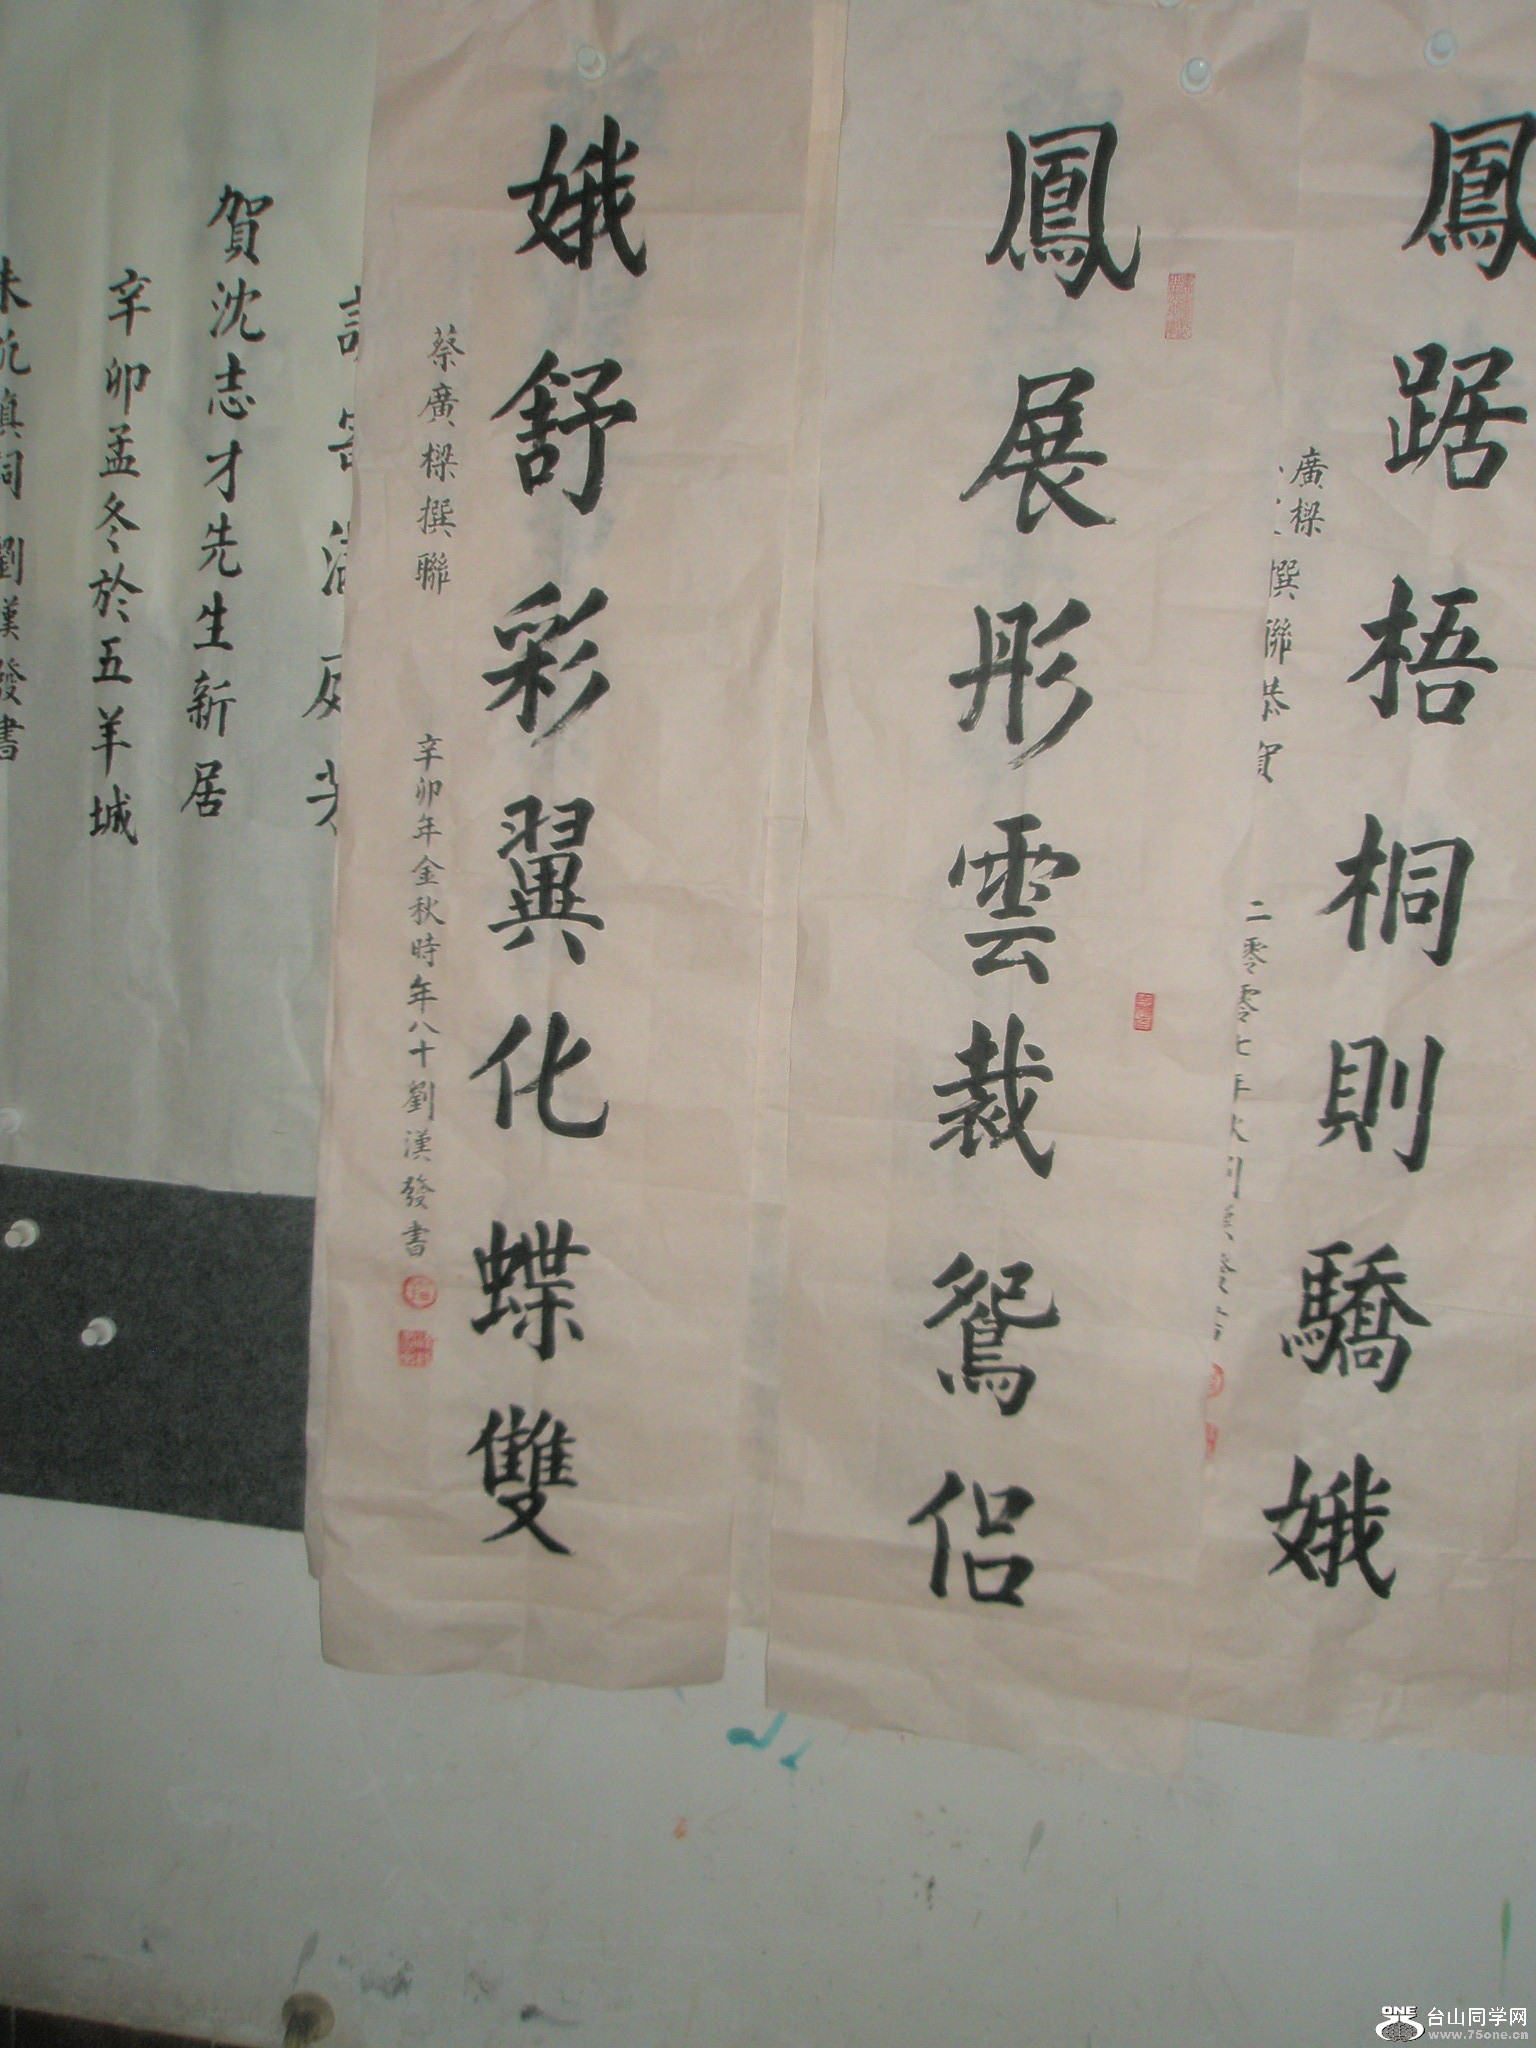 鳳踞梧桐則驕娥
廣樑
撰聯恭賀
二零零七年秋
鳳展彤雲裁鴛侣
娥舒彩翼化蝶雙
蔡廣樑撰聯
辛卯年金秋時年八十劉漢發書
賀沈志才先生新居
辛卯孟冬於五羊城
詞 劉漢發書
ONE 台山同学网
www.75one.cn